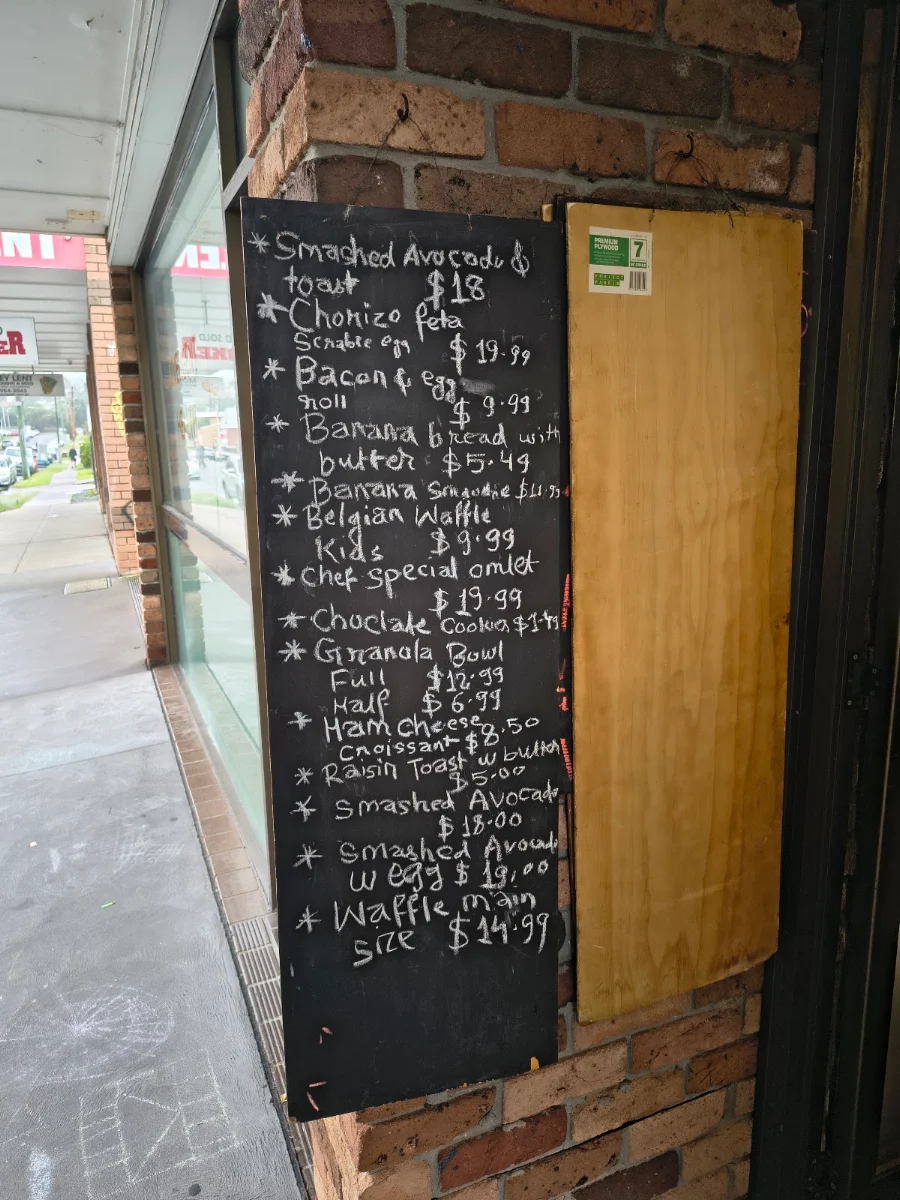 * Smashed Avocado &
toast $18
* Chorizo feta
Scrable egg $19.99
* Bacon & egg
roll $9.99
* Banana bread with
butter $5.49
* Banana Smoothie
* Belgian Waffle
Kids $9.99
* Chef special omlet
$19.99
* Choclate Cookies
* Granola Bowl
Full $12.99
Half $6.99
* Ham cheese
croissant $8.50
* Raisin Toast w butter
$5.00
* Smashed Avocado
$18.00
* Smashed Avocado
w egg $19.00
* Waffle main
size $14.99
PREMIUM
PLYWOOD
7